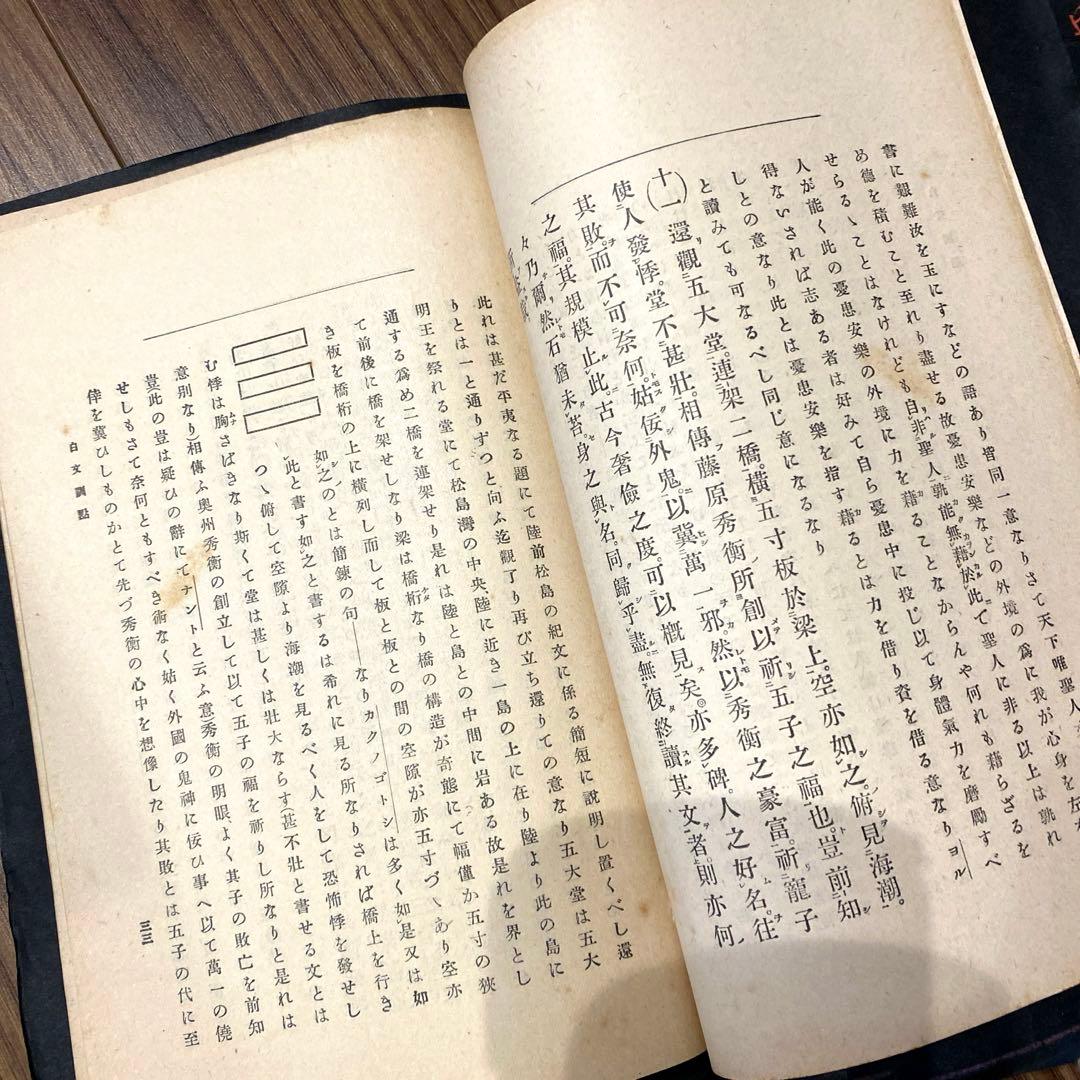 書に艱難汝を玉にすなどの語あり皆同一意なりさて天下唯聖人
め德を積むこと至れり盡せる故憂患安樂などの外境の爲に我が心身を左
せらるゝことはなけれども自非聖人孰能無藉於此で聖人に非る以上は孰れ
人が能く此の憂患安樂の外境に力を藉ることなからんや何れも藉らざるを
得ないされば志ある者は好みて自ら憂患中に投じ以て身體氣力を磨勵すべ
しとの意なり此とは憂患安樂を指す藉るとは力を借り資を借る意なりヨル
と讀みても可なるべし同じ意になるなり
(十一)還觀五大堂。連架二橋。橫五寸板於梁上。空亦如之。俯見海潮。
使人發悸。堂不甚壯。相傳藤原秀衡所創以祈五子之福也。豈前知
其敗。而不可奈何。姑佞外鬼。以冀萬一邪。然以秀衡之豪富。祈寵子
之福。其規模止此。古今奢儉之度。可以槪見矣。亦多碑。人之好名。往
々乃爾。然石猶未苔。身之與名。同歸乎盡。無復終讀其文者。則亦何
此れは甚だ平夷なる題にて陸前松島の紀文に係る簡短に說明し置くべし還
りとは一と通りずつと向ふ迄觀了り再び立ち還りての意なり五大堂は五大
明王を祭れる堂にて松島灣の中央、陸に近き一島の上に在り陸より此の島に
通する爲め二橋を連架せり是れは陸と島との中間に岩ある故是れを界とし
て前後に橋を架せしなり梁は橋桁なり橋の構造が奇態にて幅僅か五寸の狹
き板を橋桁の上に橫列し而して板と板との間の空隙が亦五寸づゝあり空亦
如之のとは簡鍊の句――なりカクノゴトシは多く如是又は如
此と書す如之と書するは希れに見る所なりされば橋上を行き
つゝ俯して空隙より海潮を見るべく人をして恐怖悸を發せし
む悸は胸さばきなり斯くて堂は甚しくは壯大ならす(甚不壯と書せる文とは
意別なり)相傳ふ奧州秀衡の創立して以て五子の福を祈りし所なりと是れは
豈此の豈は疑ひの辭にてナントと云ふ意秀衡の明眼よく其子の敗亡を前知
せしもさて奈何ともすべき術なく姑く外國の鬼神に佞ひ事へ以て萬一の僥
倖を冀ひしものかとて先づ秀衡の心中を想像したり其敗とは五子の代に至
白文訓點
三三